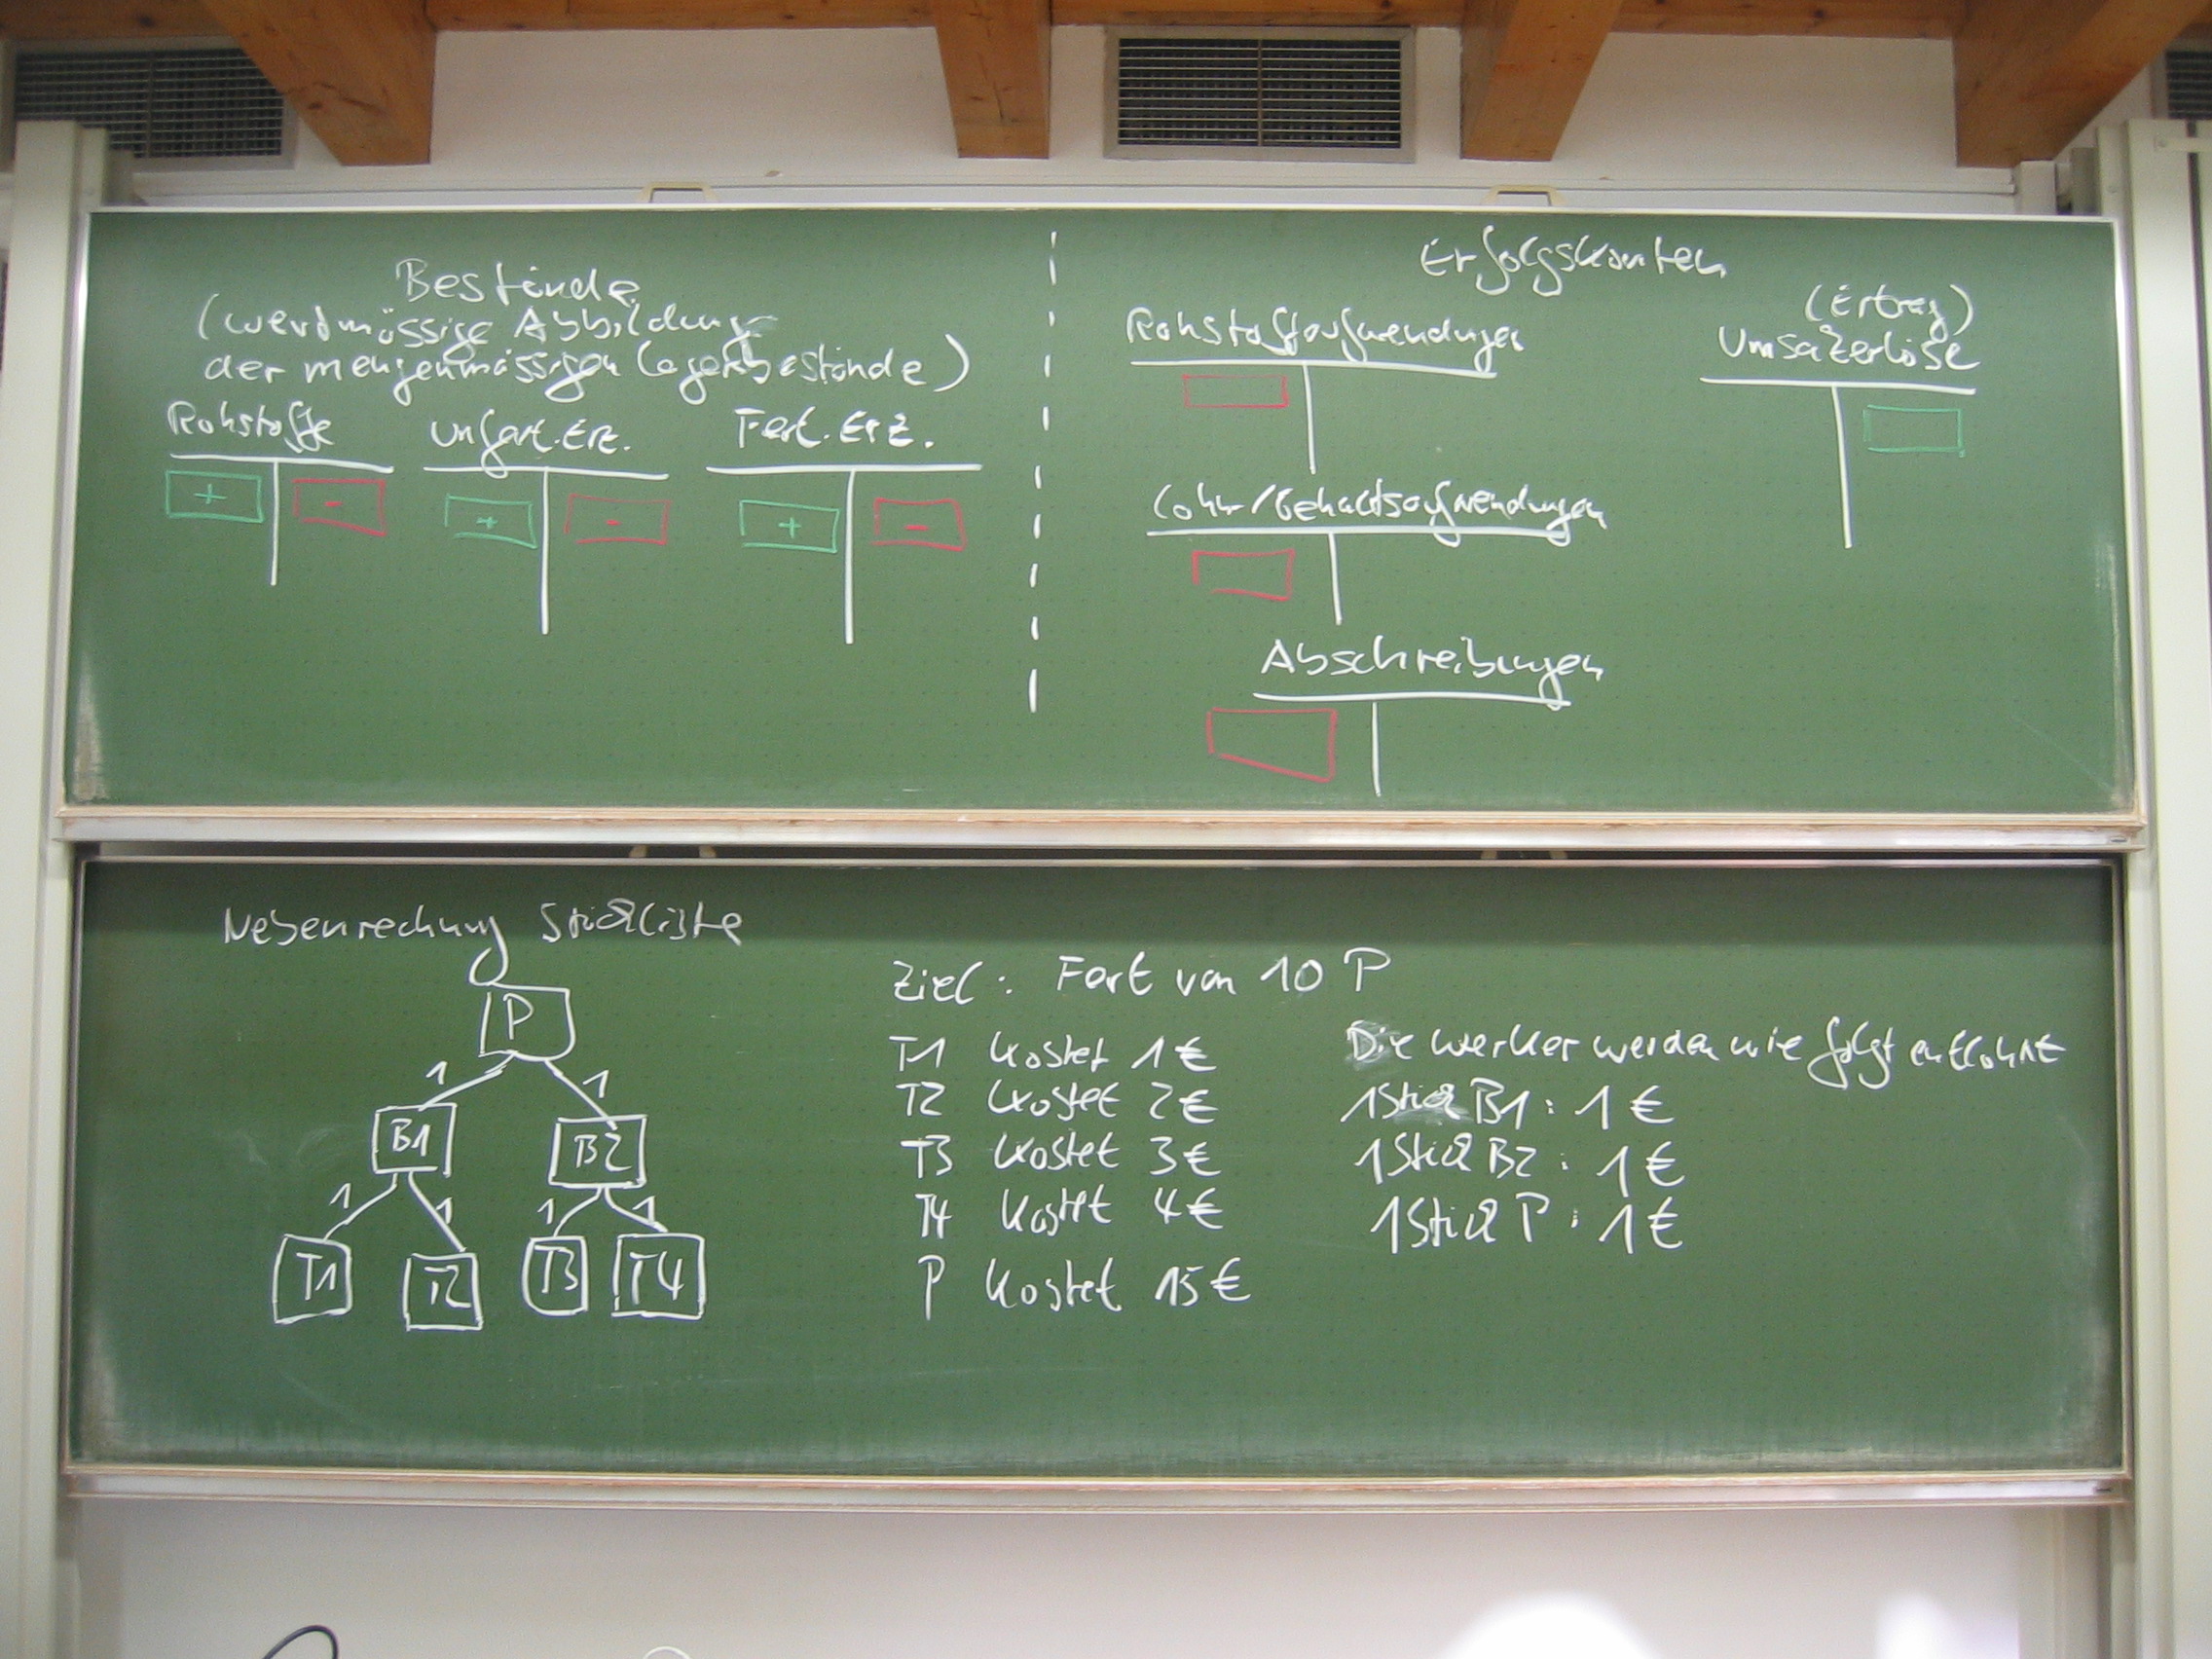 Bestände
(wertmässige Abbildung
der mengenmässigen Lagerbestände)
Rohstoffe
+ -
Unfert. Erz.
+ -
Fert. Erz.
+ -
Erfolgskonten
Rohstoffaufwendungen
(Ertrag)
Umsatzerlöse
Lohn-/Gehaltsaufwendungen
Abschreibungen
Nebenrechnung Stückliste
P
1 1
B1 B2
1 1 1 1
T1 T2 T3 T4
Ziel: Fert von 10 P
T1 kostet 1€
T2 kostet 2€
T3 kostet 3€
T4 kostet 4€
P kostet 15€
Die Werker werden wie folgt entlohnt
1 Stück B1: 1€
1 Stück B2: 1€
1 Stück P: 1€